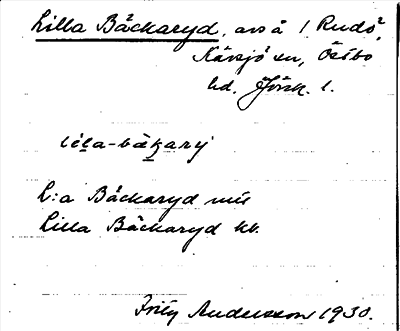 Lilla Bäckaryd, avs å 1 Rudö,
Kärsjö sn, Östbo
hd. Jönk. l.
lila-bäkarj
L:a Bäckaryd mil
Lilla Bäckaryd kb.
Fritz Andersson 1930.